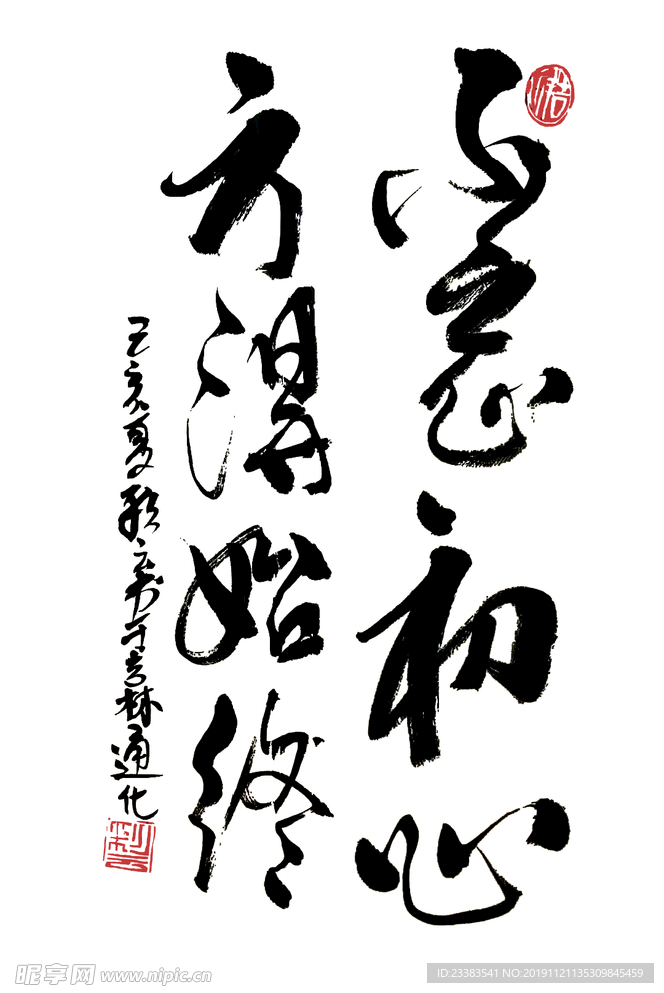 不忘初心
方得始终
夏
书于吉林通化
昵享网 www.nipic.cn
ID:23383541 NO:20191121135309845459